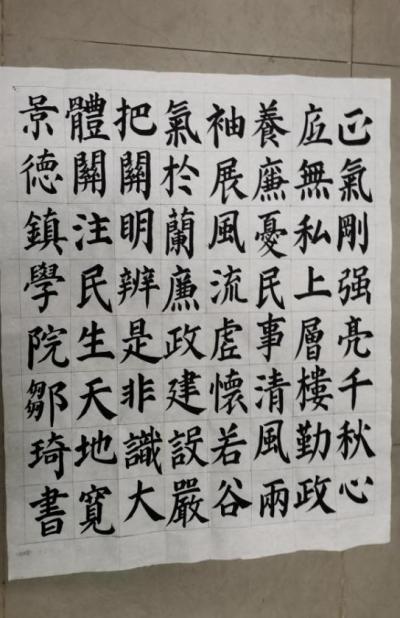 正氣剛强亮千秋心
底無私上層樓勤政
養廉憂民事清風兩
袖展風流虚懷若谷
氣於蘭廉政建設嚴
把關明辨是非識大
體關注民生天地寬
景德鎮學院鄒琦書